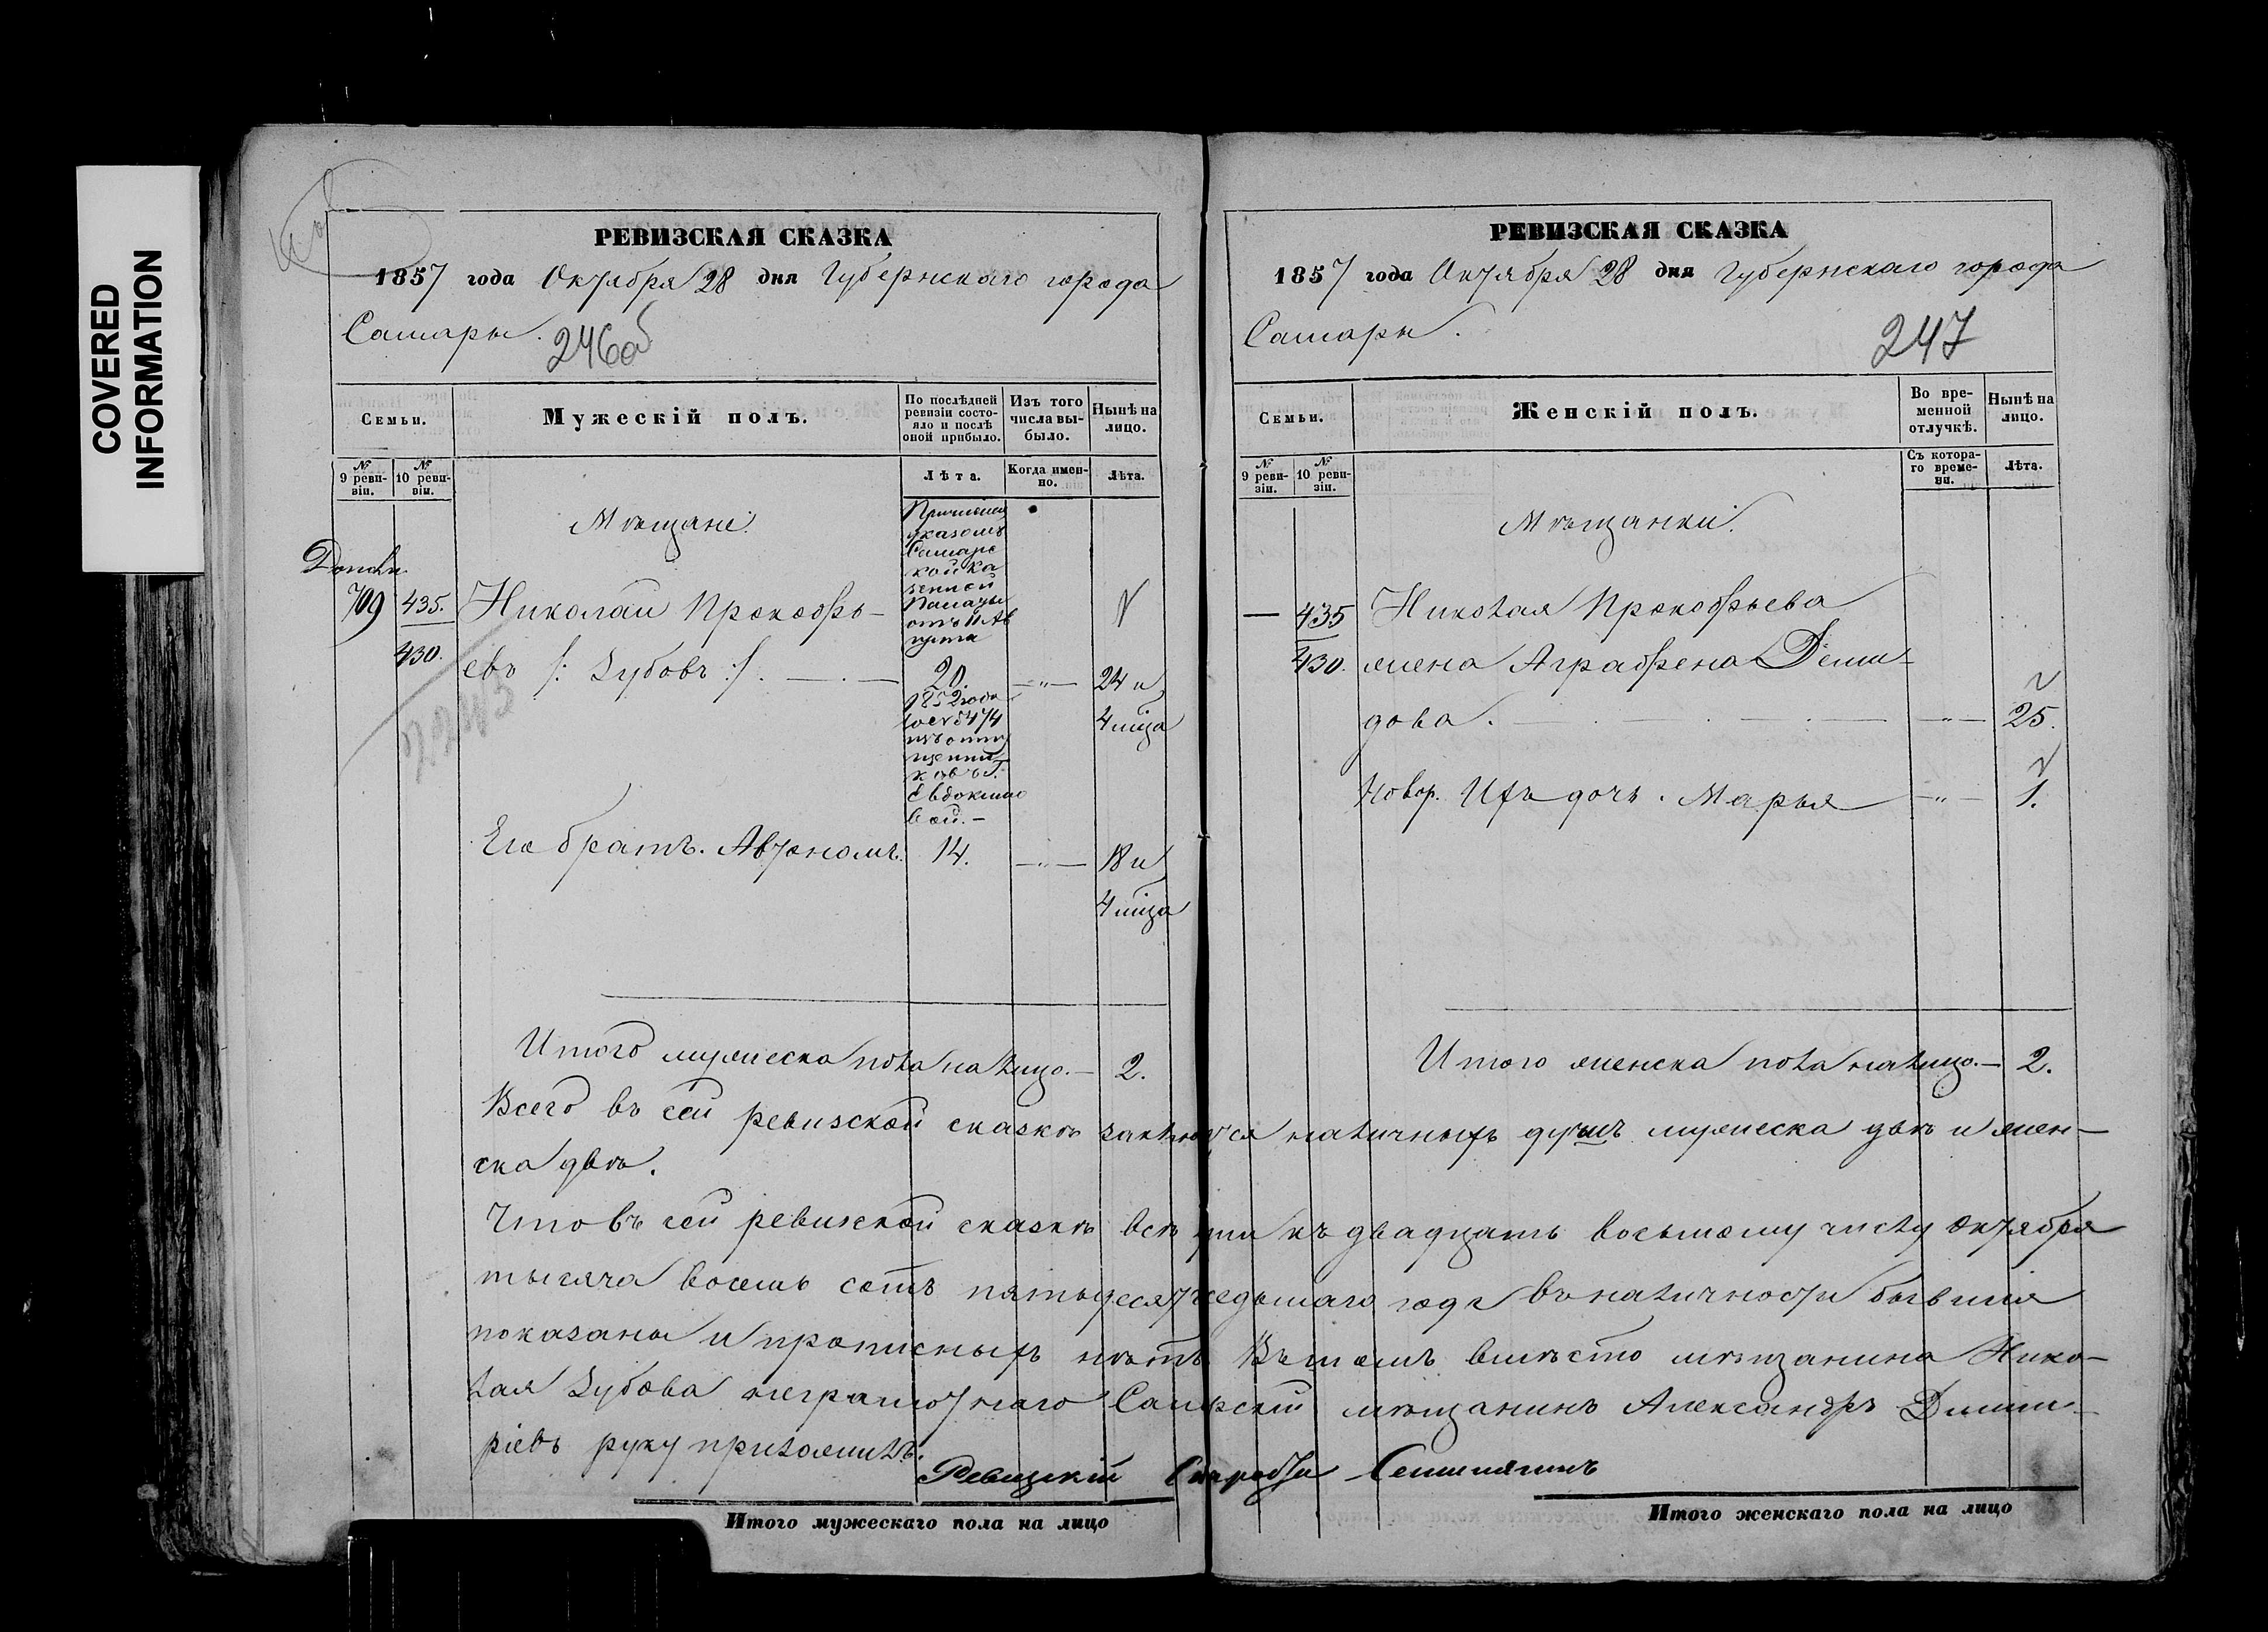 COVERED
INFORMATION
РЕВИЗСКАЯ СКАЗКА
1857 года Октября 28 дня Губернскаго города
Самары.
246об
Семьи.
Мужескій полъ.
По послѣдней ревизіи состояло и послѣ оной прибыло.
Изъ того числа выбыло.
Нынѣ на лицо.
№ 9 ревизіи.
№ 10 ревизіи.
Лѣта.
Когда именно.
Лѣта.
Мѣщане.
Причислены
указомъ
Самарс
кой Ка
зенной
Палаты
отъ 11 Ав
густа
709 435. Николай Прокофь-
430. евъ /: Зубовъ :/. 20. —"— 24 и
4 мѣца
1852 года
изъ отпу
щенни
ковъ Г.
Евдокимо
вой.—
Его братъ. Автономъ. 14. —"— 18 и
4 мѣца
Итого мужеска пола на лицо.— 2.
РЕВИЗСКАЯ СКАЗКА
1857 года Октября 28 дня Губернскаго города
Самары.
247
Семьи.
Женскій полъ.
Во временной отлучкѣ.
Нынѣ на лицо.
№ 9 ревизіи.
№ 10 ревизіи.
Съ котораго времени.
Лѣта.
Мѣщанки.
— 435 Николая Прокофьева
430. жена Аграфена Деми-
дова. —"— 25.
Новор. Ихъ дочь. Марья —"— 1.
Итого женска пола на лицо.— 2.
Всего въ сей ревизской сказкѣ заключ.ся наличныхъ душъ мужеска двѣ и жен-
ска двѣ.
Что въ сей ревизской сказкѣ всѣ къ двадцать восьмому числу Октября
тысяча восемь сотъ пятьдесятъ седьмаго года въ наличности бывшія
показаны и прописныхъ нѣтъ. Въ томъ вмѣсто мѣщанина Нико-
лая Зубова неграмотнаго Самрскій мѣщанинъ Александръ Дмит-
ріевъ руку приложилъ.
Ревизскій Староста
Итого мужескаго пола на лицо
Итого женскаго пола на лицо